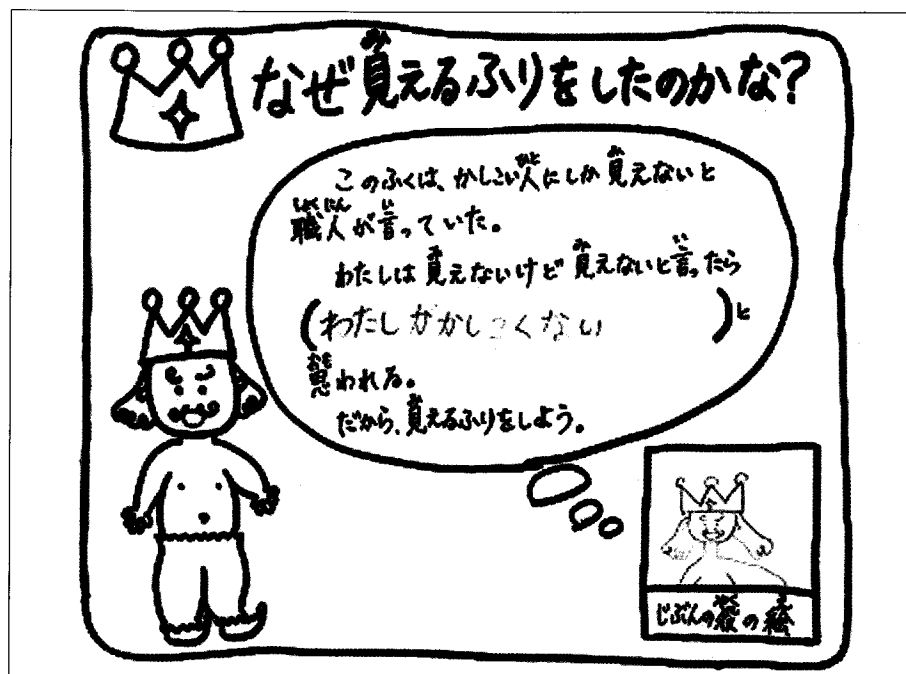 なぜ見えるふりをしたのかな?
このふくは、かしこい人にしか見えないと
職人が言っていた。
わたしは見えないけど見えないと言ったら
(わたしがかしこくない)と
思われる。
だから、見えるふりをしよう。
じぶんの役の絵